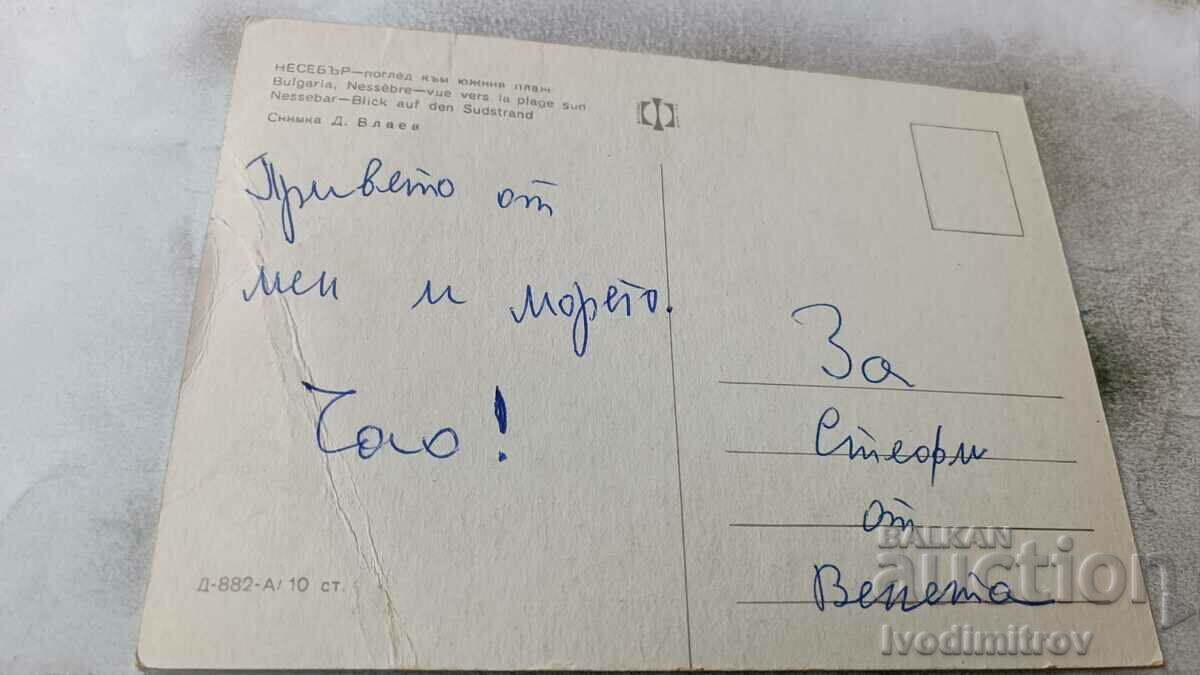 НЕСЕБЪР—поглед към южния плаж
Bulgaria, Nessèbre—vue vers la plage sud
Nessebar—Blick auf den Südstrand
Снимка Д. Влаев
Привето от
мен и морето.
Чао!
Д-882-А/ 10 ст.
За
Стеори
от
Венета
BALKAN
auction
Ivodimitrov